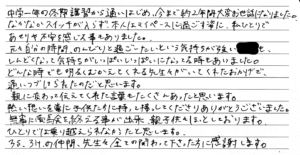 中学一年の冬期講習から通いはじめ、今まで約2年間大変お世話になりました。
なかなかスイッチが入らず、本人はマイペースに過ごす姿に、私ひとりで
あせりや不安を感じる事もありました。
元々自分の時間、のんびりと過ごしたいという気持ちが強い
しんどくなって気持ちがいっぱいいっぱいになってる時もありました。
どんな時でも明るくむかえてくれる先生方がいてくれたおかげで、
通いつづけられたのだと思います。
親に変わって伝えてくれた言葉もたくさんあったと思います。
熱い想いを毎に子供たちに持って接してくださりありがとうございました。
無事に後高校を終える事が出来、親子供々ほっとしております。
ひとりでは乗り越えられなかったと思います。
35.34.の仲間、先生々全ての関わって下さった方に感謝します。